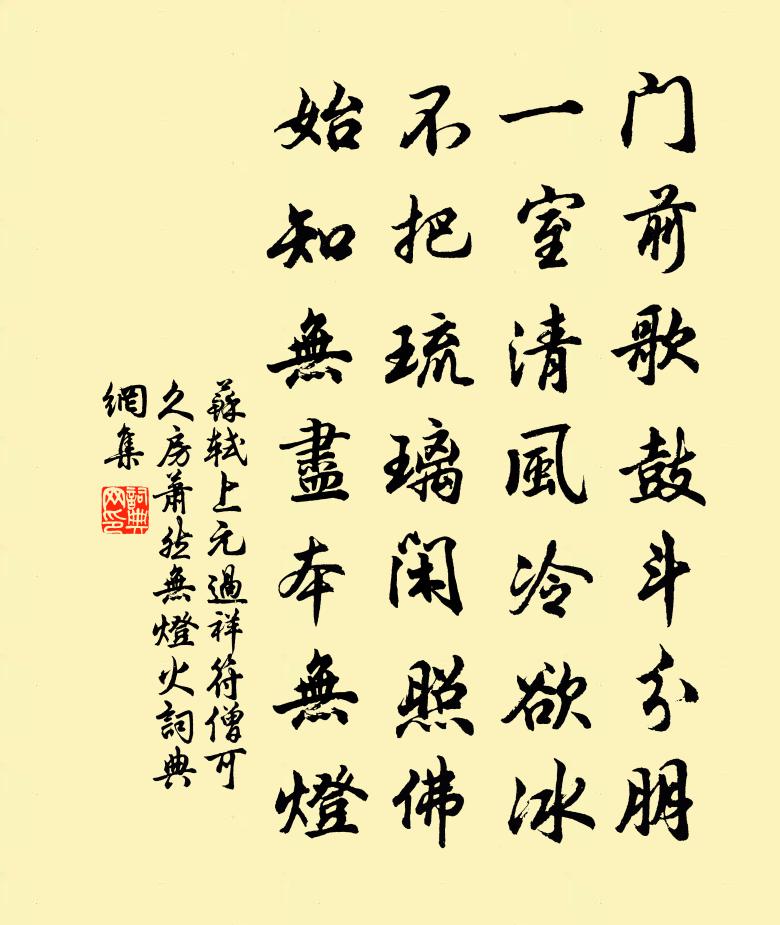 门前歌鼓斗分朋
一室清風冷欲冰
不把琉璃閑照佛
始知無盡本無燈
蘇軾上元過祥符僧可
久房蕭然無燈火詞典
網集
詞典
网印